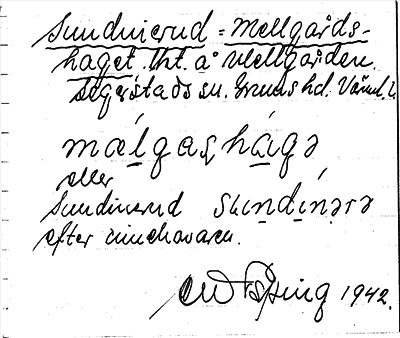 Sundinerud = Mellgårds-
haget. lht. å Mellgården.
Segerstads sn. Grums hd. Värml. l.
mǽlgaʂhágə
eller
Sundinerud sundínərə
efter innehavaren.
1942.